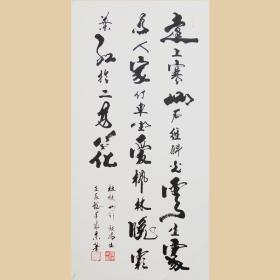 遠上寒山石徑斜白雲生處
有人家停車坐愛楓林晚霜
葉紅於二月花
杜牧山行